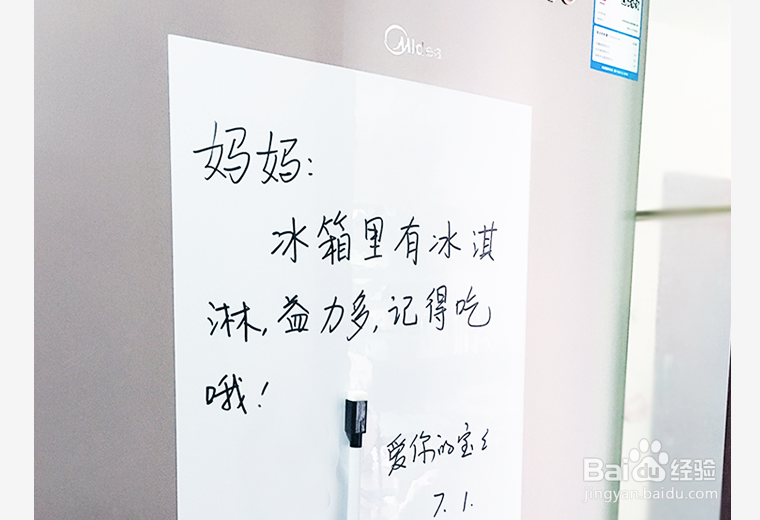 Midea
妈妈:
冰箱里有冰淇
淋,益力多,记得吃
哦!
爱你的宝
7.1.
Baidu经验
jingyan.baidu.com